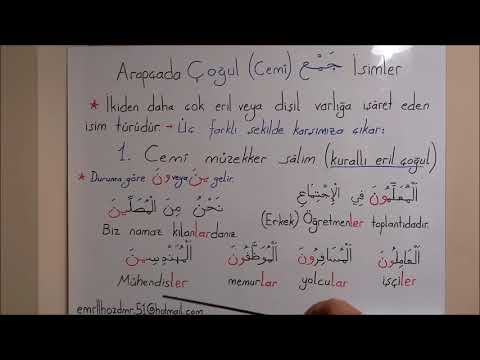 Arapçada Çoğul (Cemî) جَمْع İsimler
* İkiden daha çok eril veya dişil varlığa işâret eden
isim türüdür. → Üç farklı şekilde karşımıza çıkar:
1. Cemî müzekker sâlim (kurallı eril çoğul)
* Duruma göre ونَ veya ينَ gelir.
اَلْمُعَلِّمُونَ فِي الْاِجْتِمَاعِ
(Erkek) Öğretmenler toplantıdadır.
نَحْنُ مِنَ الْمُصَلِّينَ
Biz namaz kılanlardanız.
اَلْعَامِلُونَ اَلْمُسَافِرُونَ اَلْمُوَظَّفُونَ اَلْمُهَنْدِسِينَ
Mühendisler memurlar yolcular işçiler
emrllhozdmr.51@hotmail.com